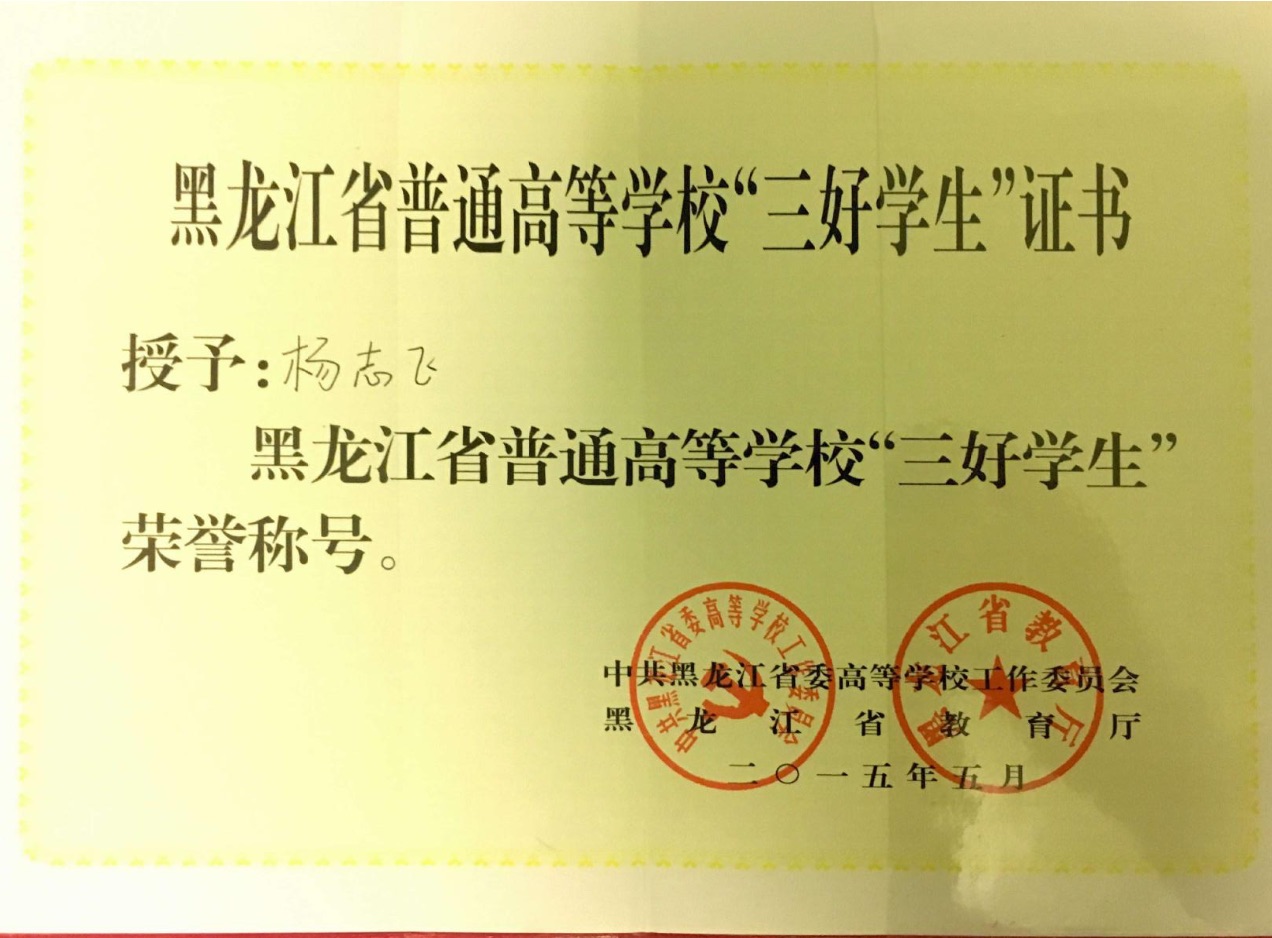 黑龙江省普通高等学校“三好学生”证书
授予:杨志飞
黑龙江省普通高等学校“三好学生”
荣誉称号。
中共黑龙江省委高等学校工作委员会
黑龙江省教育厅
二〇一五年五月
中共黑龙江省委高等学校工作委员会
黑龙江省教育厅